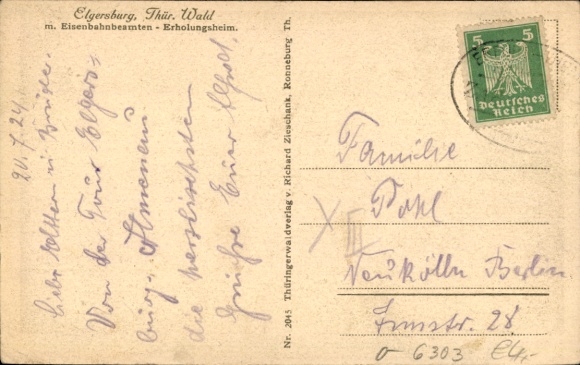 Elgersburg, Thür. Wald
m. Eisenbahnbeamten - Erholungsheim.
20.7.24
Liebe Eltern u. Brüder.
Von der Tour Elgers-
burg, Ilmenau
die herzlichsten
Grüße Euer Alfred.
Nr. 2045 Thüringerwaldverlag v. Richard Zieschank, Ronneburg Th.
5 5
Deutsches
Reich
Familie
Pohl
XIII
Neukölln Berlin
Emserstr. 28
6303